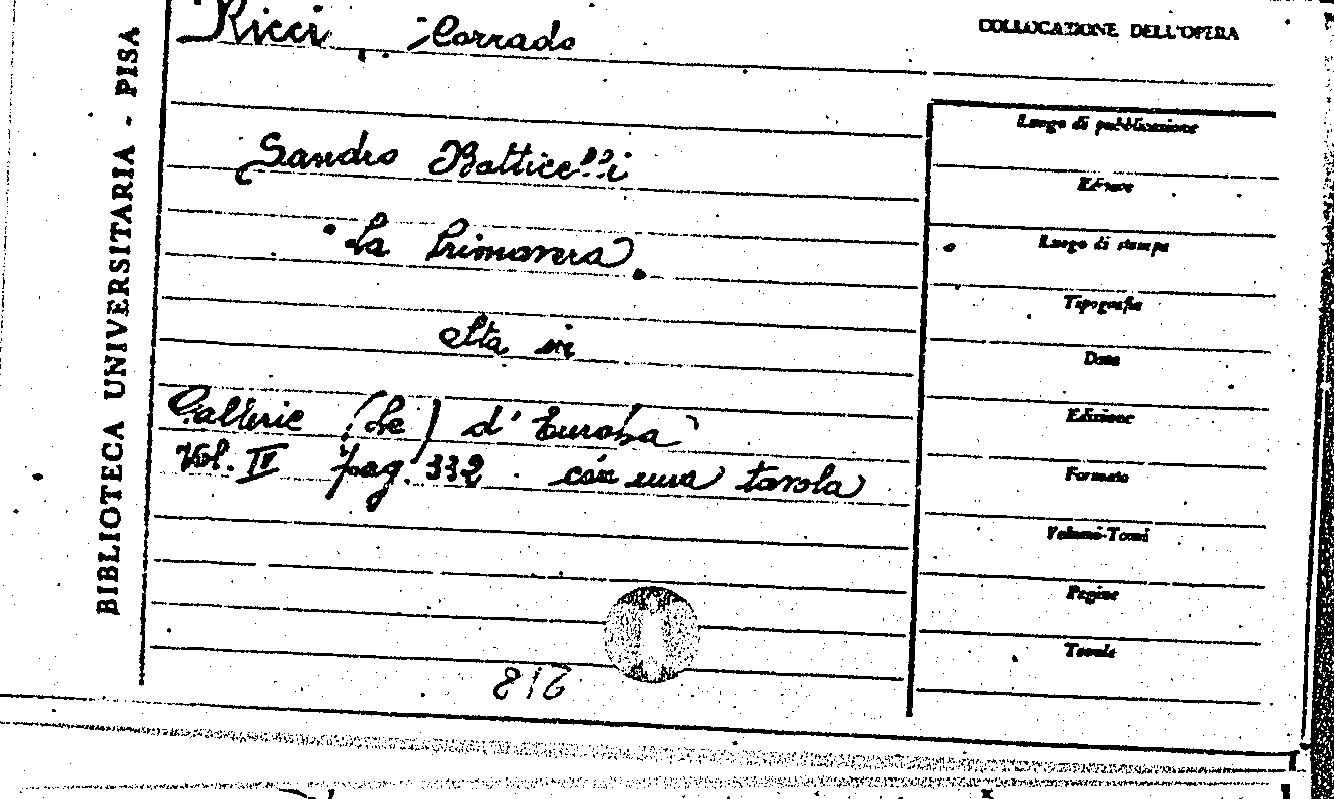 BIBLIOTECA UNIVERSITARIA - PISA
Ricci Corrado
Sandro Botticelli
"La Primavera"
Sta in
Gallerie (Le) d'Europa
Vol. IV pag. 332 . con una tavola
218
COLLOCAZIONE DELL'OPERA
Luogo di pubblicazione
Editore
Luogo di stampa
Tipografia
Data
Edizione
Formato
Volumi-Tomi
Pagine
Tavole